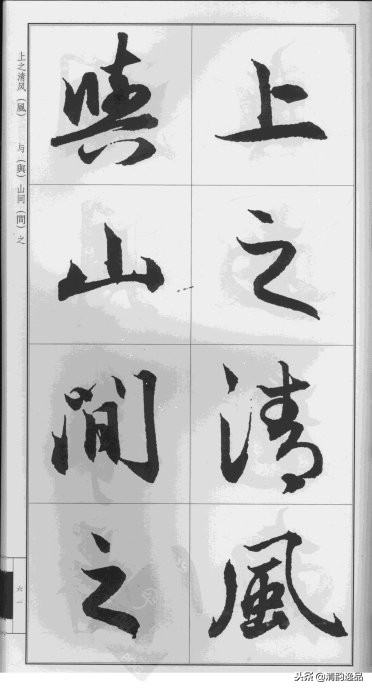 上之清風
與山間之
上之清风（風） 与（與）山间（間）之
六一
头条@清韵逸品